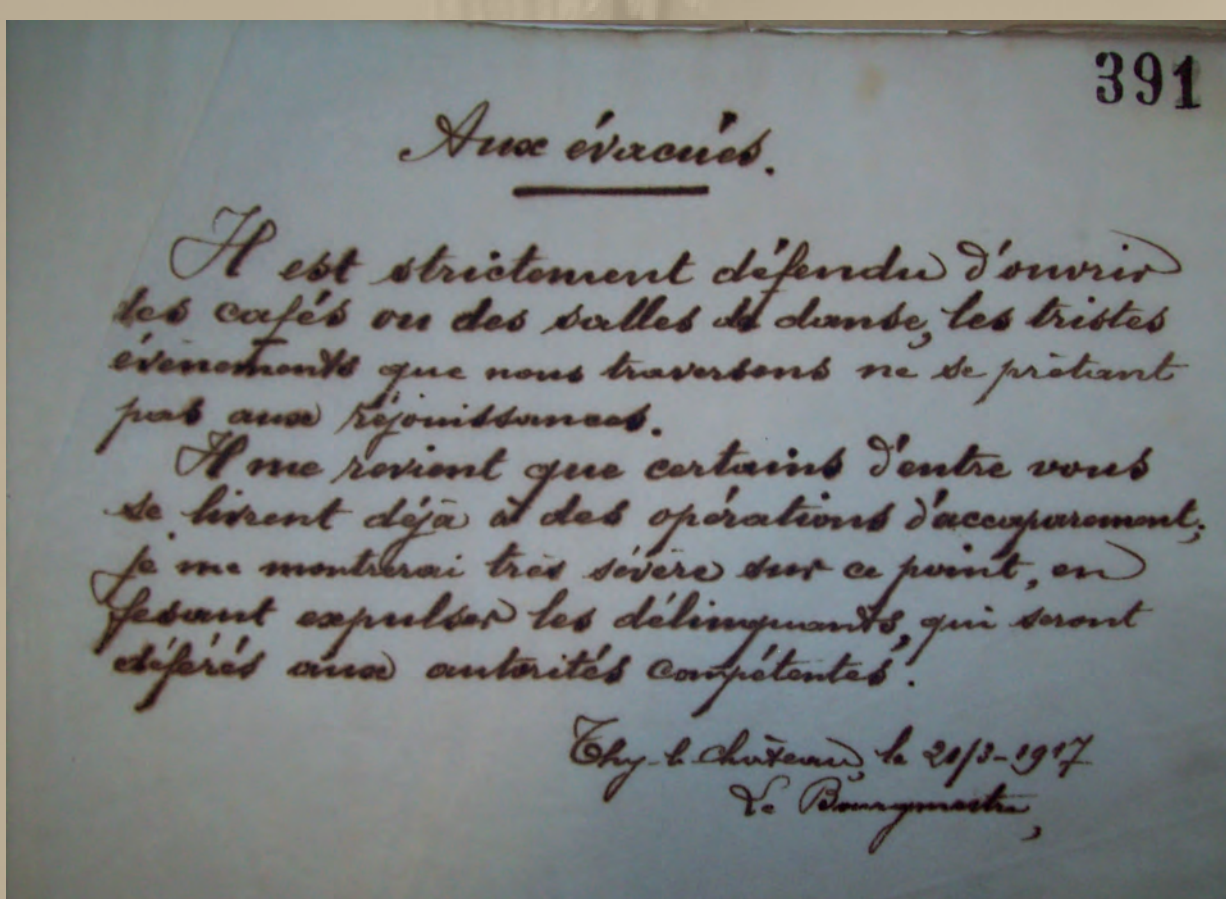 391
Aux évacués.
Il est strictement défendu d'ouvrir
des cafés ou des salles de danse, les tristes
évènements que nous traversons ne se prêtant
pas aux réjouissances.
Il me revient que certains d'entre vous
se livrent déjà à des opérations d'accaparement;
je me montrerai très sévère sur ce point, en
fesant expulser les délinquants, qui seront
déférés aux autorités compétentes.
Thy-le-château, le 21/3-1917
Le Bourgmestre,